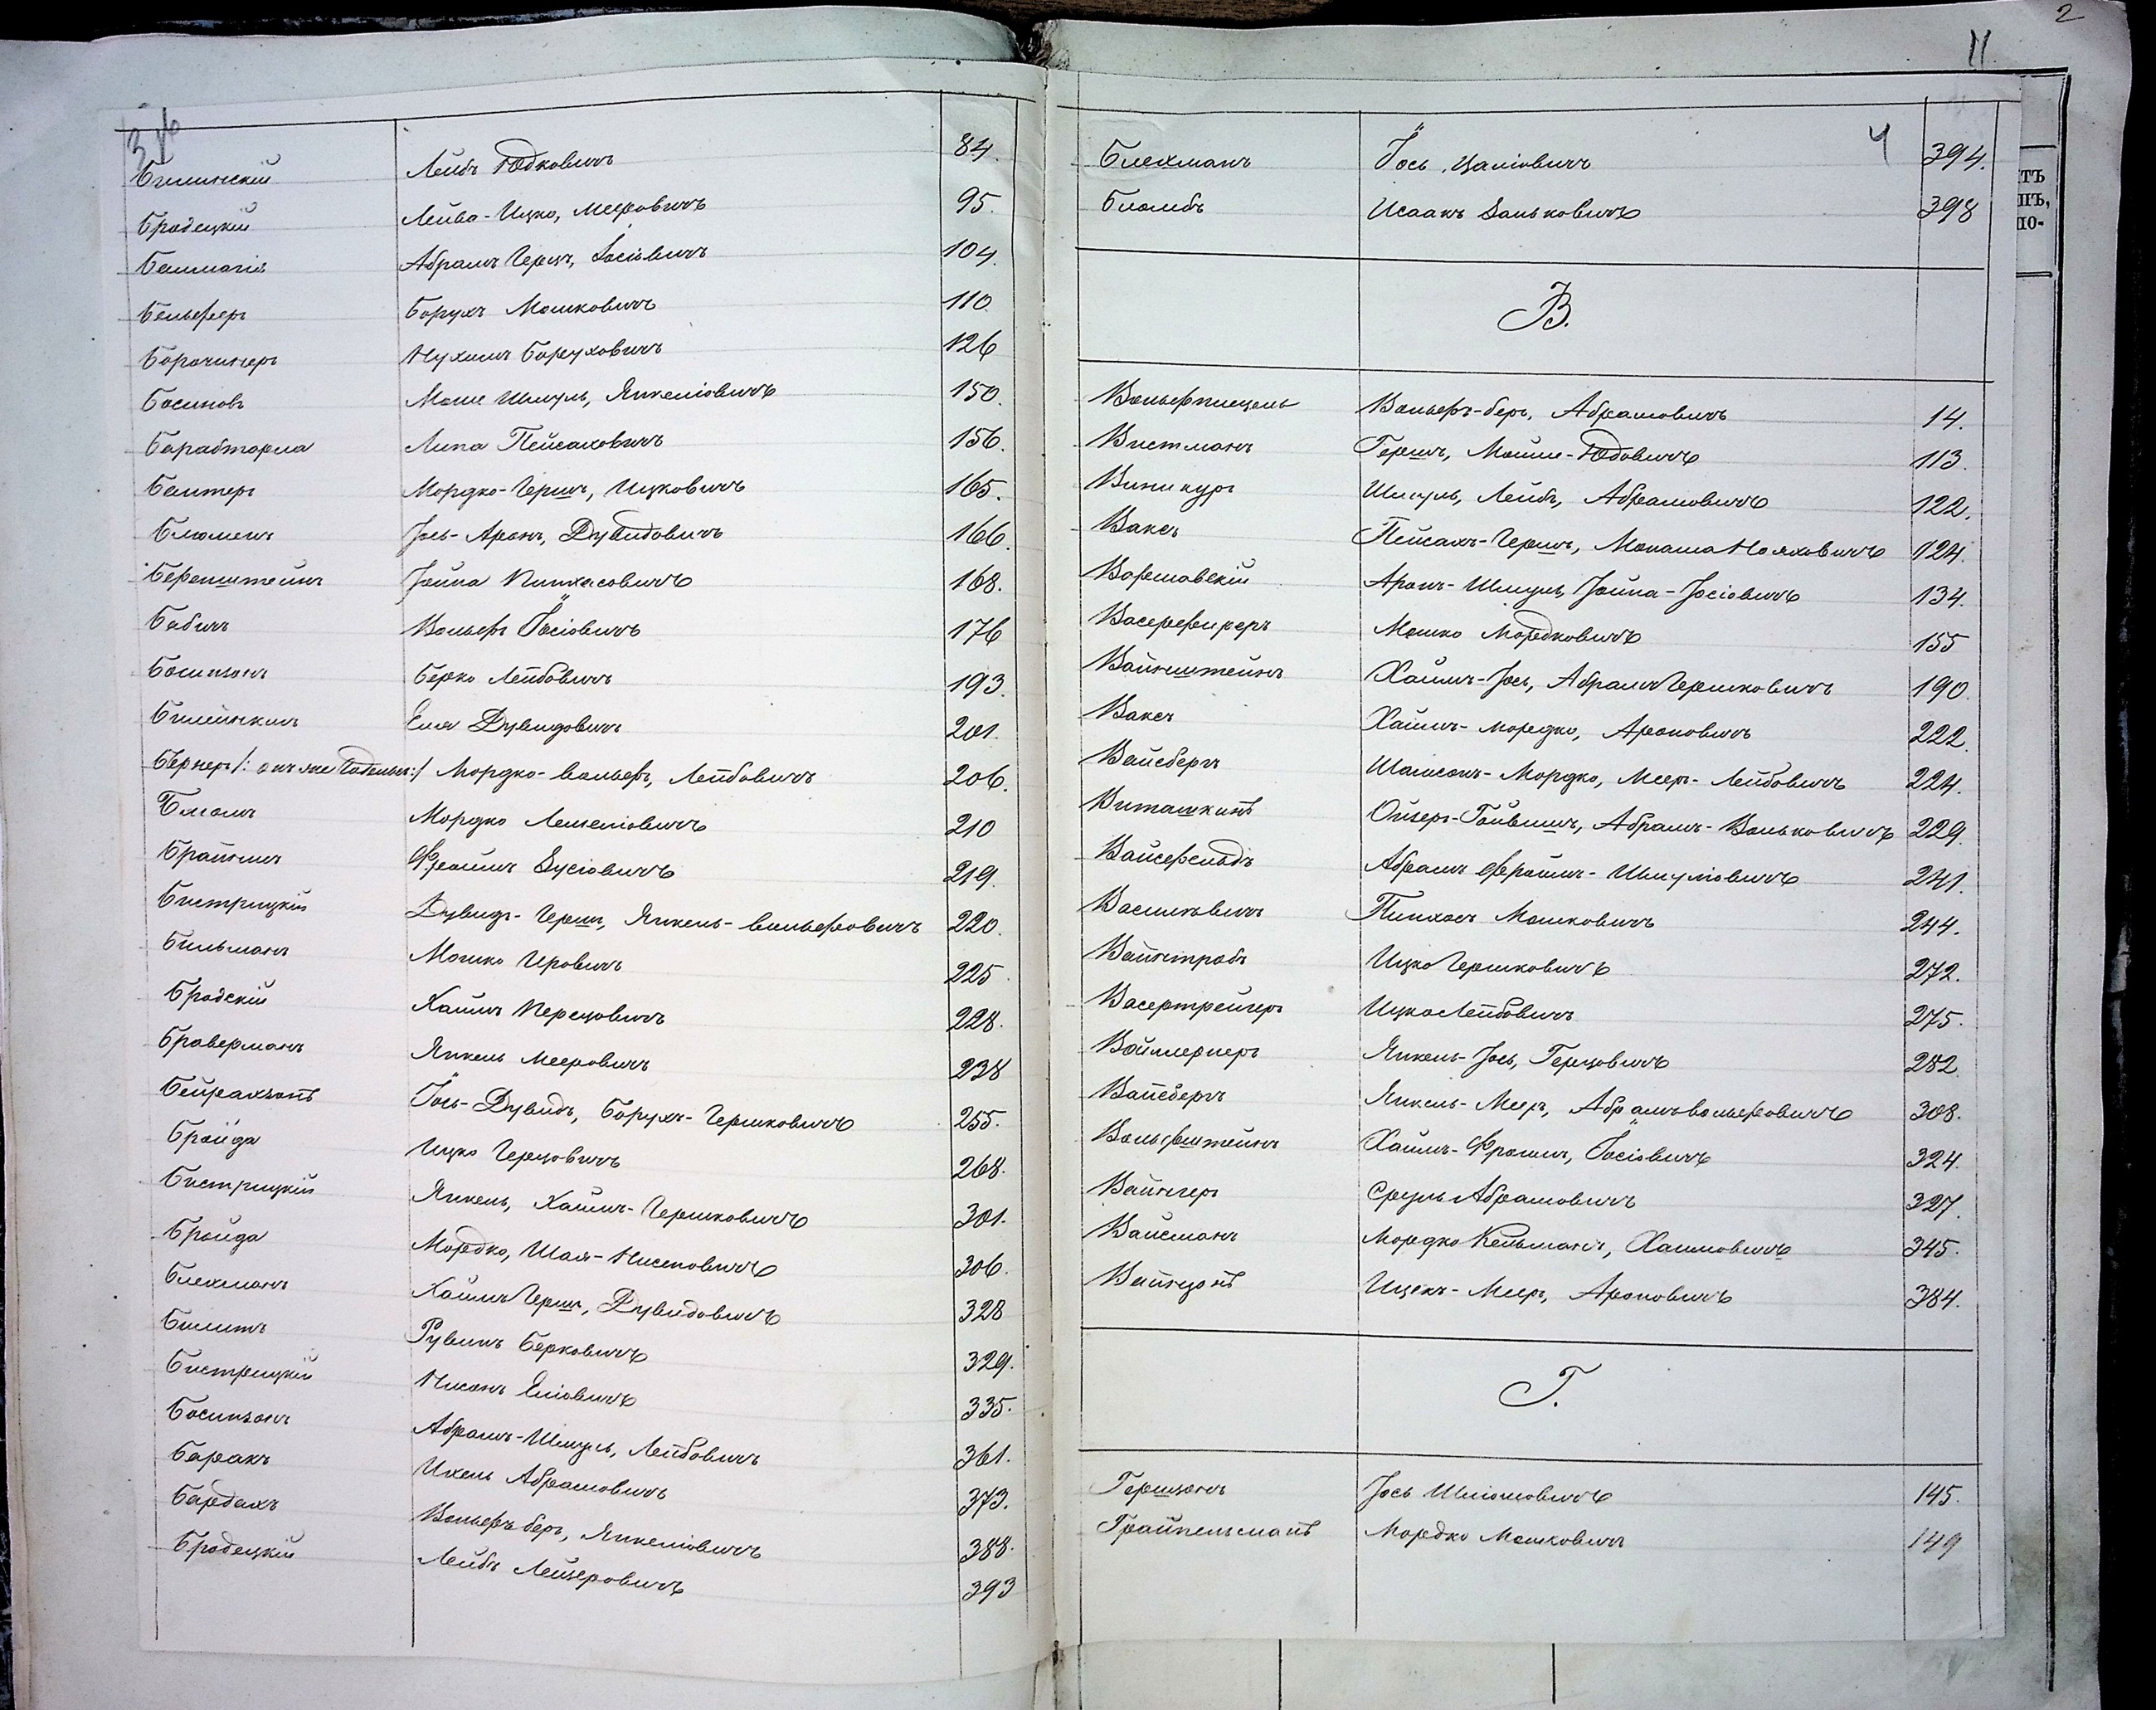 2
11
3
Билинскій Лейбъ Юдковичъ 84.
Бродецкій Лейба-Ицко, Мееровичъ 95.
Абрамъ Герцъ, Іосіовичъ 104.
Бельферъ Борухъ Мошковичъ 110.
Борочинеръ Нухимъ Боруховичъ 126
Босиновъ Моше Шмуль, Янкеліовичъ 150.
Барабтарла Липа Пейсаховичъ 156.
Бентеръ Мордко-Гершъ, Ицковичъ 165.
Блюменъ Іось-Аронъ, Дувидовичъ 166.
Беренштейнъ Іойна Пинхасовичъ 168.
Бабичъ Вольфъ Іосіовичъ 176
Босинзонъ Берко Лейбовичъ 193.
Билинкинъ Еля Дувидовичъ 201.
Бернеръ /: онъ же :/ Мордко-Вольфъ, Лейбовичъ 206.
Блюмъ Мордко 210
Фроимъ Зусіовичъ 219.
Бистрицкій Дувидъ-Гершъ, Янкель-Вольфовичъ 220.
Бильманъ Мошко Ировичъ 225
Бродскій Хаимъ Перецовичъ 228.
Браверманъ Янкель Мееровичъ 238
Бейрахзонъ Іось-Дувидъ, Борухъ-Гершковичъ 255.
Бройда Ицко Герцовичъ 268.
Бистрицкій Янкель, Хаимъ-Гершковичъ 301.
Бройда Мордко, Шая-Нисеновичъ 306.
Блехманъ Хаимъ Гершъ, Дувидовичъ 328
Билитъ Рувинъ Берковичъ 329.
Бистрицкій Нисонъ Еліовичъ 335.
Босинзонъ Абрамъ-Шмуль, Лейбовичъ 361.
Баракъ Икель Абрамовичъ 373.
Бардахъ Вольфъ Беръ, Янкеліовичъ 388.
Бродецкій Лейбъ Лейзеровичъ 393
4
Блехманъ Іось Цаліовичъ 394.
Бломбъ Исаакъ Заньковичъ 398
В.
Вольфъ-Беръ, Абрамовичъ 14.
Вистманъ Гершъ, Мойше-Юдовичъ 113.
Виникуръ Шмуль, Лейбъ, Абрамовичъ 122.
Ваксъ Пейсахъ-Гершъ, Монаша Нояховичъ 124.
Варшавскій Аронъ-Шмуль, Іойна-Іосіовичъ 134.
Васерфиреръ Мошко Мордковичъ 155
Вайнштейнъ Хаимъ-Іось, Абрамъ Гершковичъ 190
Ваксъ Хаимъ-Мордко, Ароновичъ 222.
Вайсбергъ Шамсонъ-Мордко, Меръ-Лейбовичъ 224.
Виташкинъ Ойзеръ-Гойвишъ, Абрамъ-Вольковичъ 229.
Вайсфельдъ Абрамъ Фроимъ-Шмуліовичъ 241.
Васильвичъ Пинхасъ Мошковичъ 244.
Вайнтробъ Ицко Гершковичъ 272.
Васертрейгеръ Ицко Лейбовичъ 275.
Воймернеръ Янкель-Іось, Герцовичъ 282
Вайсбергъ Янкель-Меръ, Абрамъ Вольфовичъ 308.
Вольфштейнъ Хаимъ-Фроимъ, Іосіовичъ 324.
Вайнгеръ Сруль Абрамовичъ 327.
Вайсманъ Мордко Кельманъ, Хаимовичъ 345.
Вайнзонъ Ицекъ-Меръ, Ароновичъ 384.
Г.
Гершзонъ Іось Шліомовичъ 145.
Грайпельманъ Мордко Мошковичъ 149
ТЪ
ПЪ,
ПО-